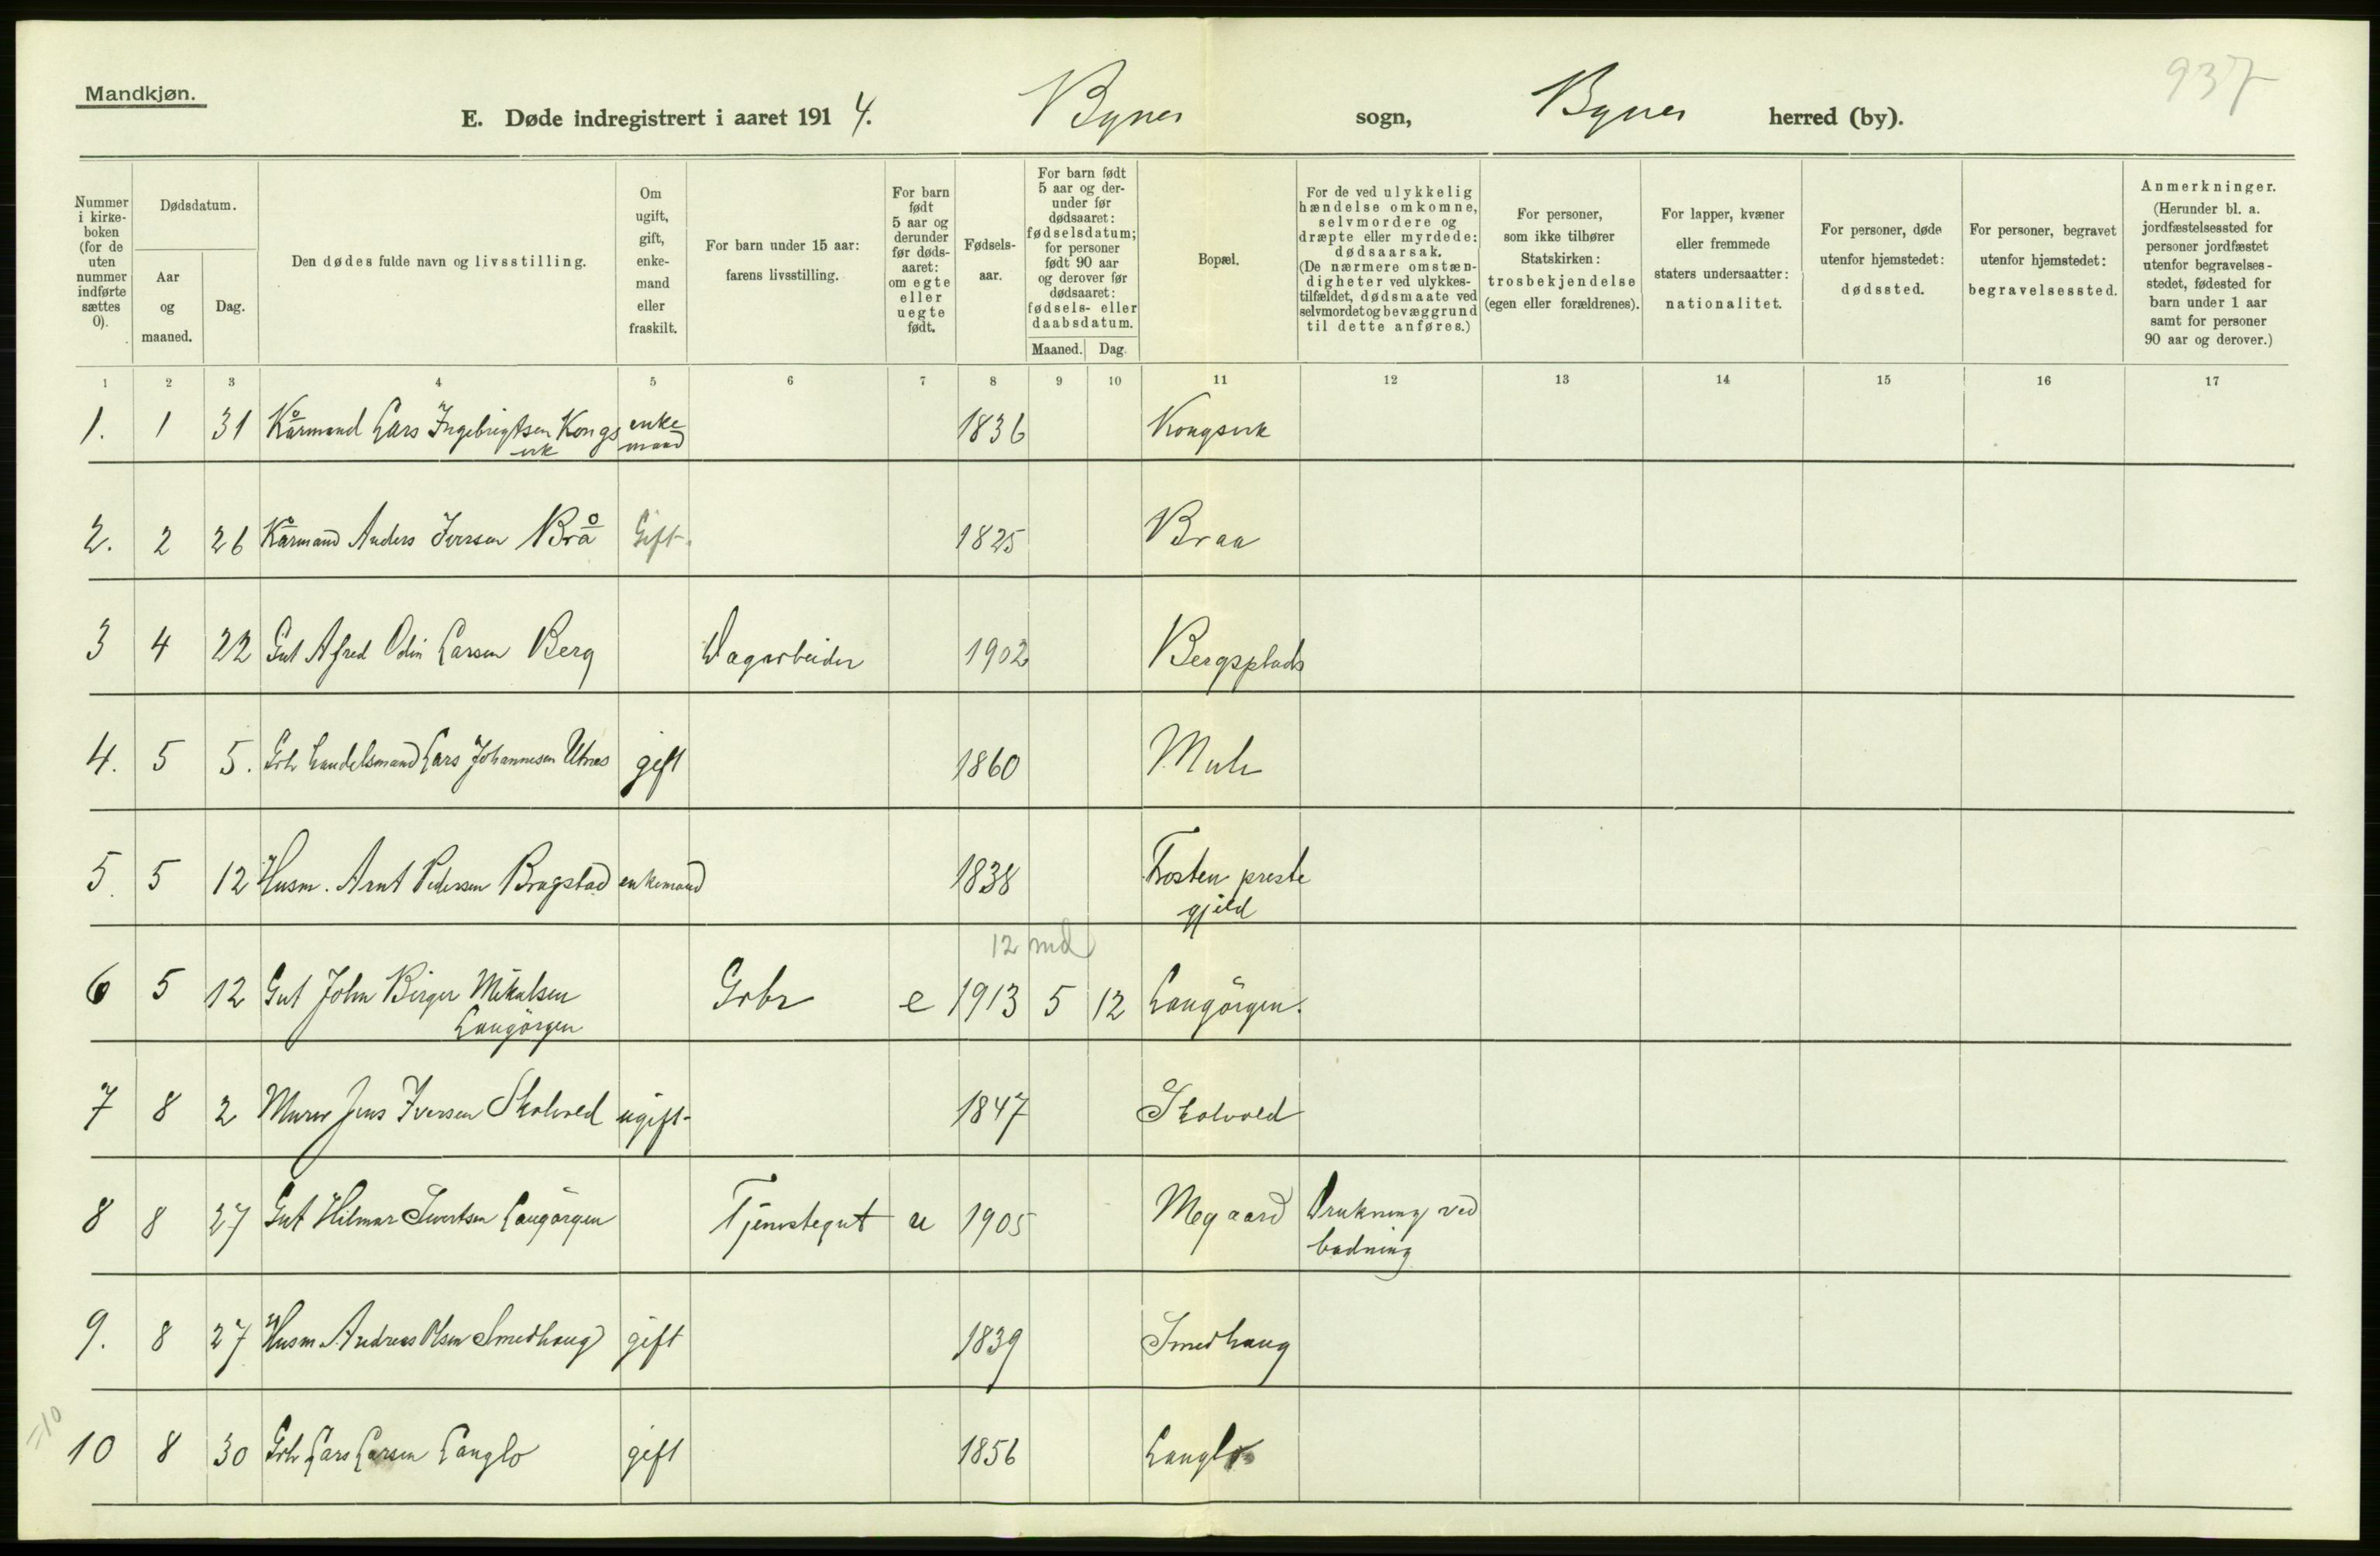 937
Mandkjøn.
E. Døde indregistrert i aaret 1914. Bynes sogn, Bynes herred (by).
Nummer i kirke-boken (for de uten nummer indførte sættes 0).
Dødsdatum.
Aar og maaned.
Dag.
Den dødes fulde navn og livsstilling.
Om ugift, gift, enke-mand eller fraskilt.
For barn under 15 aar: farens livsstilling.
For barn født 5 aar og derunder før døds-aaret: om egte eller uegte født.
Fødsels-aar.
For barn født 5 aar og der-under før dødsaaret: fødselsdatum; for personer født 90 aar og derover før dødsaaret: fødsels- eller daabsdatum.
Maaned.
Dag.
Bopæl.
For de ved ulykkelig hændelse omkomne, selvmordere og dræpte eller myrdede: dødsaarsak. (De nærmere omstæn-digheter ved ulykkes-tilfældet, dødsmaate ved selvmordet og bevæggrund til dette anføres.)
For personer, som ikke tilhører Statskirken: trosbekjendelse (egen eller forældrenes).
For lapper, kvæner eller fremmede staters undersaatter: nationalitet.
For personer, døde utenfor hjemstedet: dødssted.
For personer, begravet utenfor hjemstedet: begravelsessted.
Anmerkninger. (Herunder bl. a. jordfæstelsessted for personer jordfæstet utenfor begravelses-stedet, fødested for barn under 1 aar samt for personer 90 aar og derover.)
1 2 3 4 5 6 7 8 9 10 11 12 13 14 15 16 17
1. 1 31 Kårmand Lars Ingebrigtsen Kongs enke 1836 Kongsvik
vik mand
2. 2 26 Kårmand Anders Iversen Brå Gift. 1825 Braa
3 4 22 Gut Afred Odin Larsen Berg Dagarbeider 1902 Bergsplads
4. 5 5. Gbr Handelsmand Lars Johannesen Utnes gift 1860 Mule
5. 5 12 Husm. Arnt Pedersen Bragstad enkemand 1838 Frosten preste
gjeld
12 md
6 5 12 Gut John Birger Mikalsen Grbr e 1913 5 12 Langörgen.
Langörgen
7 8 2 Murer Jens Iversen Skolvold ugift- 1847 Skolvold
8 8 27 Gut Hilmar Sivertsen Langörgen Tjenestegut u 1905 Megaard Drukning ved
badning
9. 8 27 Husm Andreas Olsen Smedhaug gift 1839 Smedhaug
=10
10 8 30 Gbr Lars Larsen Langlo gift 1856 Langlo